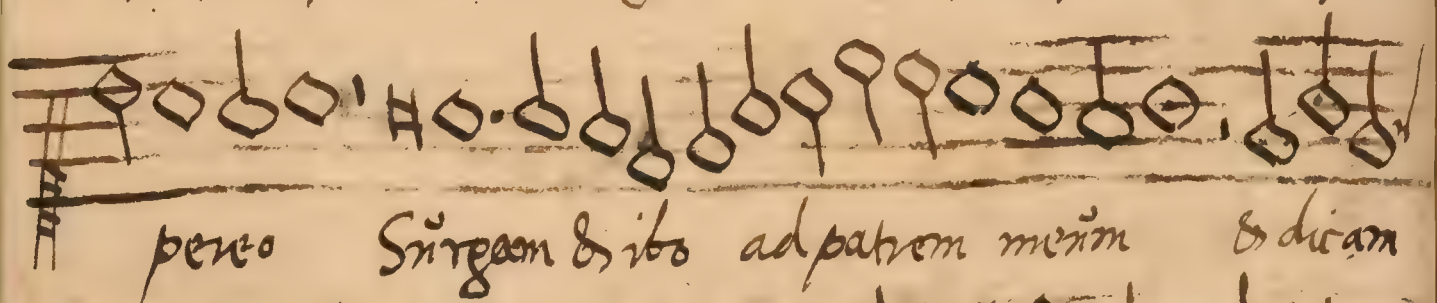 pereo Surgam & ibo ad patrem meum & dicam